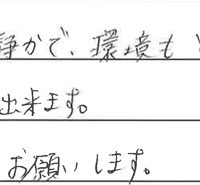 静かで、環境も
出来ます。
お願いします。